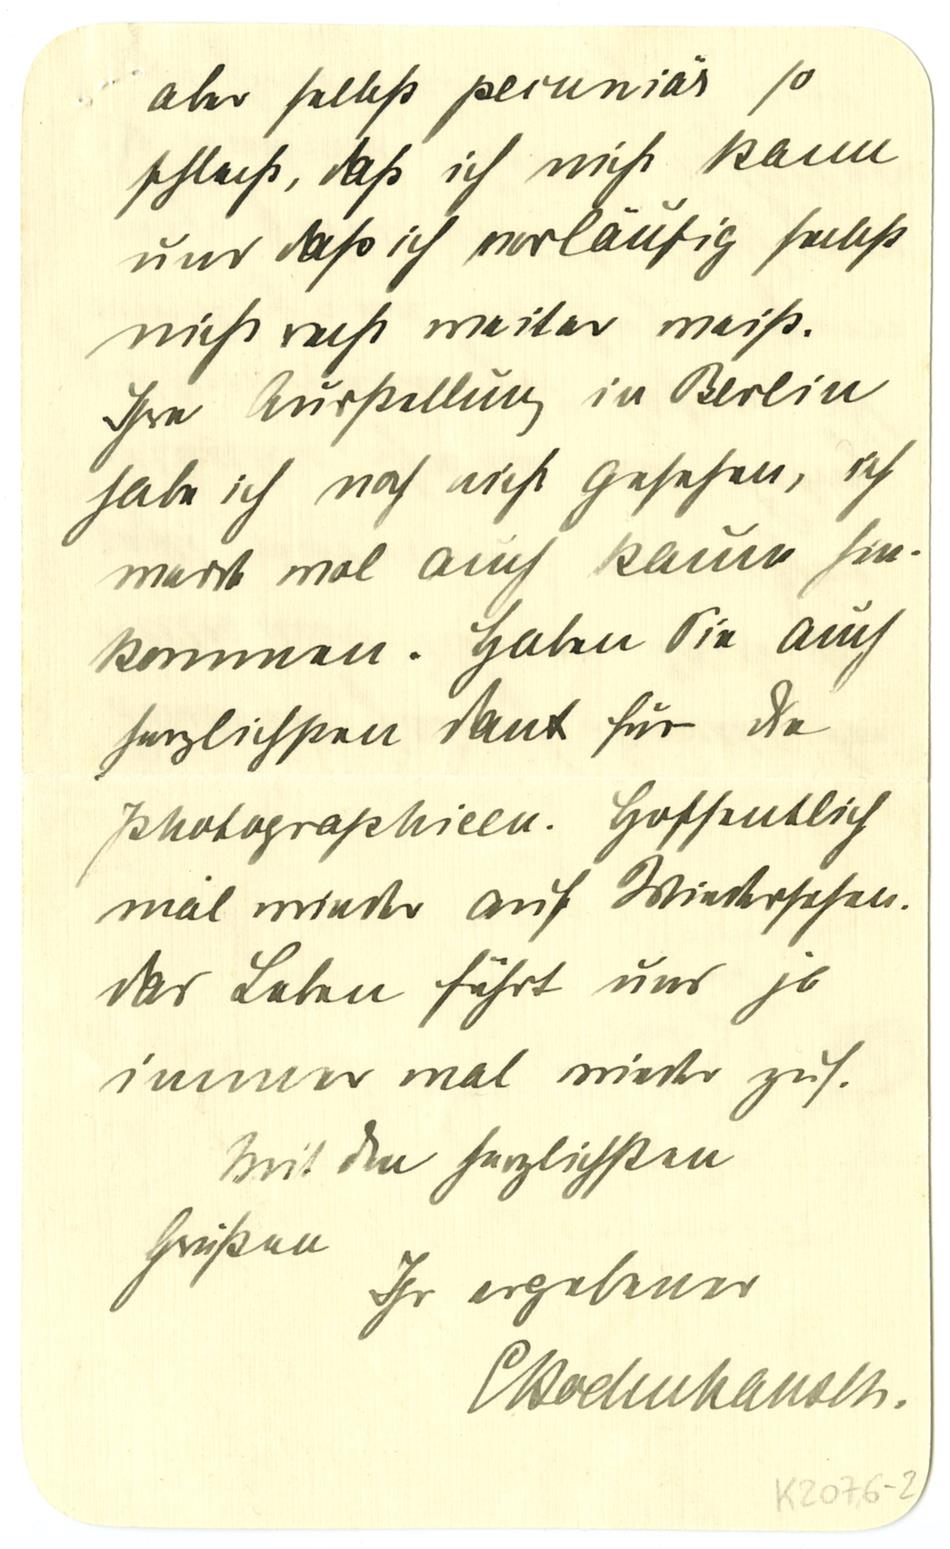 aber selbst pecuniär so
schlecht, daß ich nicht kann
und daß ich vorläufig selbst
nicht recht weiter weiß.
Ihre Ausstellung in Berlin
habe ich noch nicht gesehen, ich
werde wol auch kaum hin-
kommen. Haben Sie auch
herzlichsten Dank für die
Photographieen. Hoffentlich
mal wieder auf Wiedersehen.
das Leben führt uns ja
immer mal wieder zus.
Mit den herzlichsten
Grüßen
Ihr ergebener
EBodenhausen.
K207,6-2